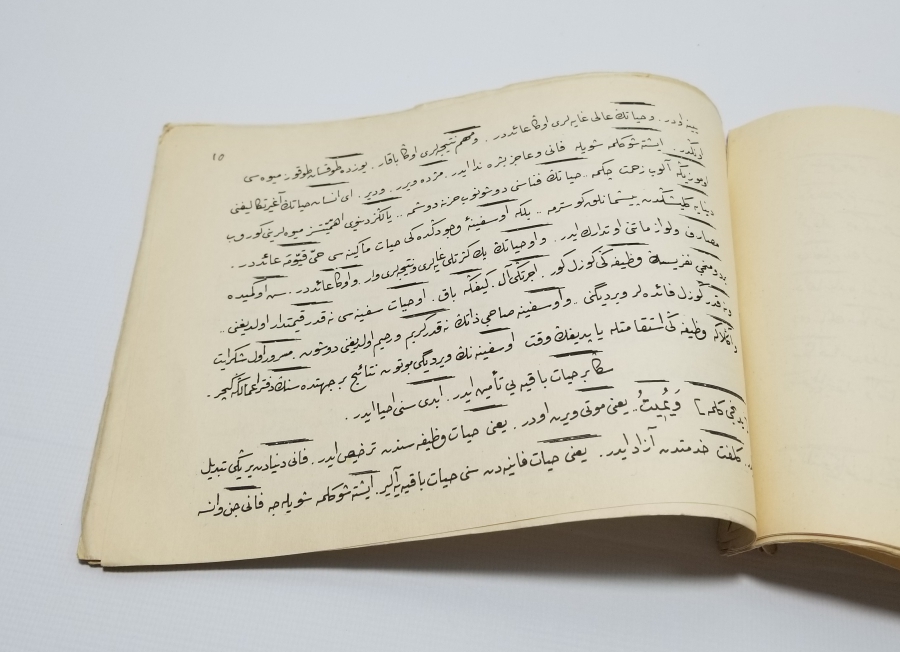 ١٥
يينه اودر. وحياتڭ عالى غايه‌لرى اوڭا عائددر. ومهم نتيجه‌لرى اوڭا باقار. يوزده طوقسان طوقوز ميوه‌سى
اونڭدر. ايشته شو كلمه شويله فانى وعاجز بشره ندا ايدر. مژده ويرر. ودير. اى انسان حياتڭ آغير تكاليفنى
اوموزيڭه آلوب زحمت چكمه. حياتڭ فناسنى دوشونوب حزنه دوشمه.. يالڭز دنيوى اهميتسز ميوه‌لرينى كوروب
دنيايه كليشڭدن پيشمانلق كوسترمه.. بلكه او سفينۀ وجودڭده‌كى حيات ماكينه‌سى حىّ قيّومه عائددر.
مصارف ولوازماتنى او تدارك ايدر. واو حياتڭ پك كثرتلى غايه‌لرى ونتيجه‌لرى وار. واو اوڭا عائددر. سن او كميده
بر دومنجى نفريسڭ وظيفه‌ڭى كوزل كور. اجرتڭى آل. كيفڭه باق. او حيات سفينه‌سى نه قدر قيمتدار اولديغنى..
ونه قدر كوزل فائده‌لر ويرديگنى. واو سفينه صاحبى ذاتڭ نه قدر كريم ورحيم اولديغنى دوشون. مسرور اول شكر ايت
وآڭلا كه وظيفه‌ڭى استقامتله ياپديغڭ وقت او سفينه‌نڭ ويرديگى بوتون نتائج بر جهتده سنڭ دفتر اعمالڭه كچر.
سڭا بر حيات باقيه‌يى تأمين ايدر. ابدى سنى احيا ايدر.
كلمه] وَيُمِيتُ. يعنى موتى ويرن اودر. يعنى حيات وظيفه‌سندن ترخيص ايدر. فانى دنيادن يريڭى تبديل
كلفت خدمتدن آزاد ايدر. يعنى حيات فانيه‌دن سنى حيات باقيه‌يه آلير. ايشته شو كلمه شويله‌جه فانى جن وانسه